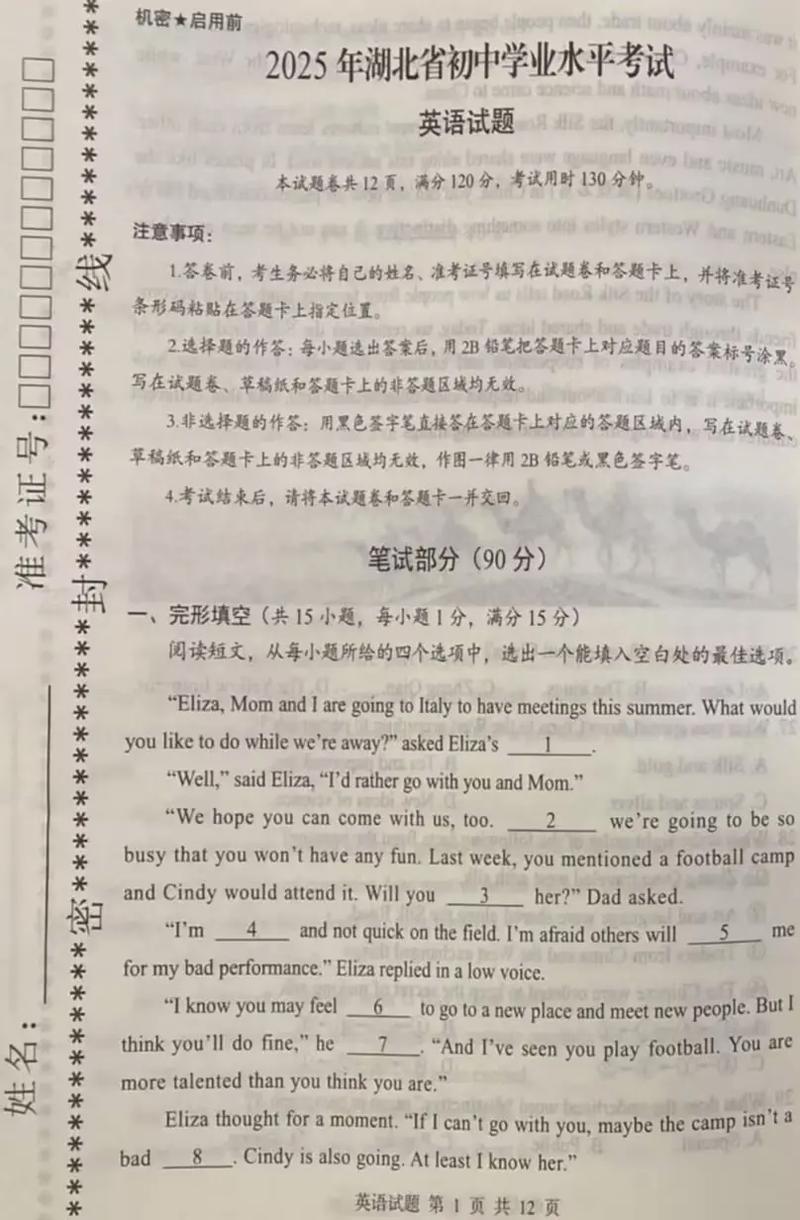 机密★启用前
2025年湖北省初中学业水平考试
英语试题
本试题卷共12页，满分120分，考试用时130分钟。
注意事项：
1.答卷前，考生务必将自己的姓名、准考证号填写在试题卷和答题卡上，并将准考证号
条形码粘贴在答题卡上指定位置。
2.选择题的作答：每小题选出答案后，用2B铅笔把答题卡上对应题目的答案标号涂黑。
写在试题卷、草稿纸和答题卡上的非答题区域均无效。
3.非选择题的作答：用黑色签字笔直接答在答题卡上对应的答题区域内，写在试题卷、
草稿纸和答题卡上的非答题区域均无效，作图一律用2B铅笔或黑色签字笔。
4.考试结束后，请将本试题卷和答题卡一并交回。
笔试部分（90分）
一、完形填空（共15小题，每小题1分，满分15分）
阅读短文，从每小题所给的四个选项中，选出一个能填入空白处的最佳选项。
“Eliza, Mom and I are going to Italy to have meetings this summer. What would
you like to do while we’re away?” asked Eliza’s 1 .
“Well,” said Eliza, “I’d rather go with you and Mom.”
“We hope you can come with us, too. 2 we’re going to be so
busy that you won’t have any fun. Last week, you mentioned a football camp
and Cindy would attend it. Will you 3 her?” Dad asked.
“I’m 4 and not quick on the field. I’m afraid others will 5 me
for my bad performance.” Eliza replied in a low voice.
“I know you may feel 6 to go to a new place and meet new people. But I
think you’ll do fine,” he 7 . “And I’ve seen you play football. You are
more talented than you think you are.”
Eliza thought for a moment. “If I can’t go with you, maybe the camp isn’t a
bad 8 . Cindy is also going. At least I know her.”
英语试题 第 1 页 共 12 页
姓名：
准考证号：
密 封 线